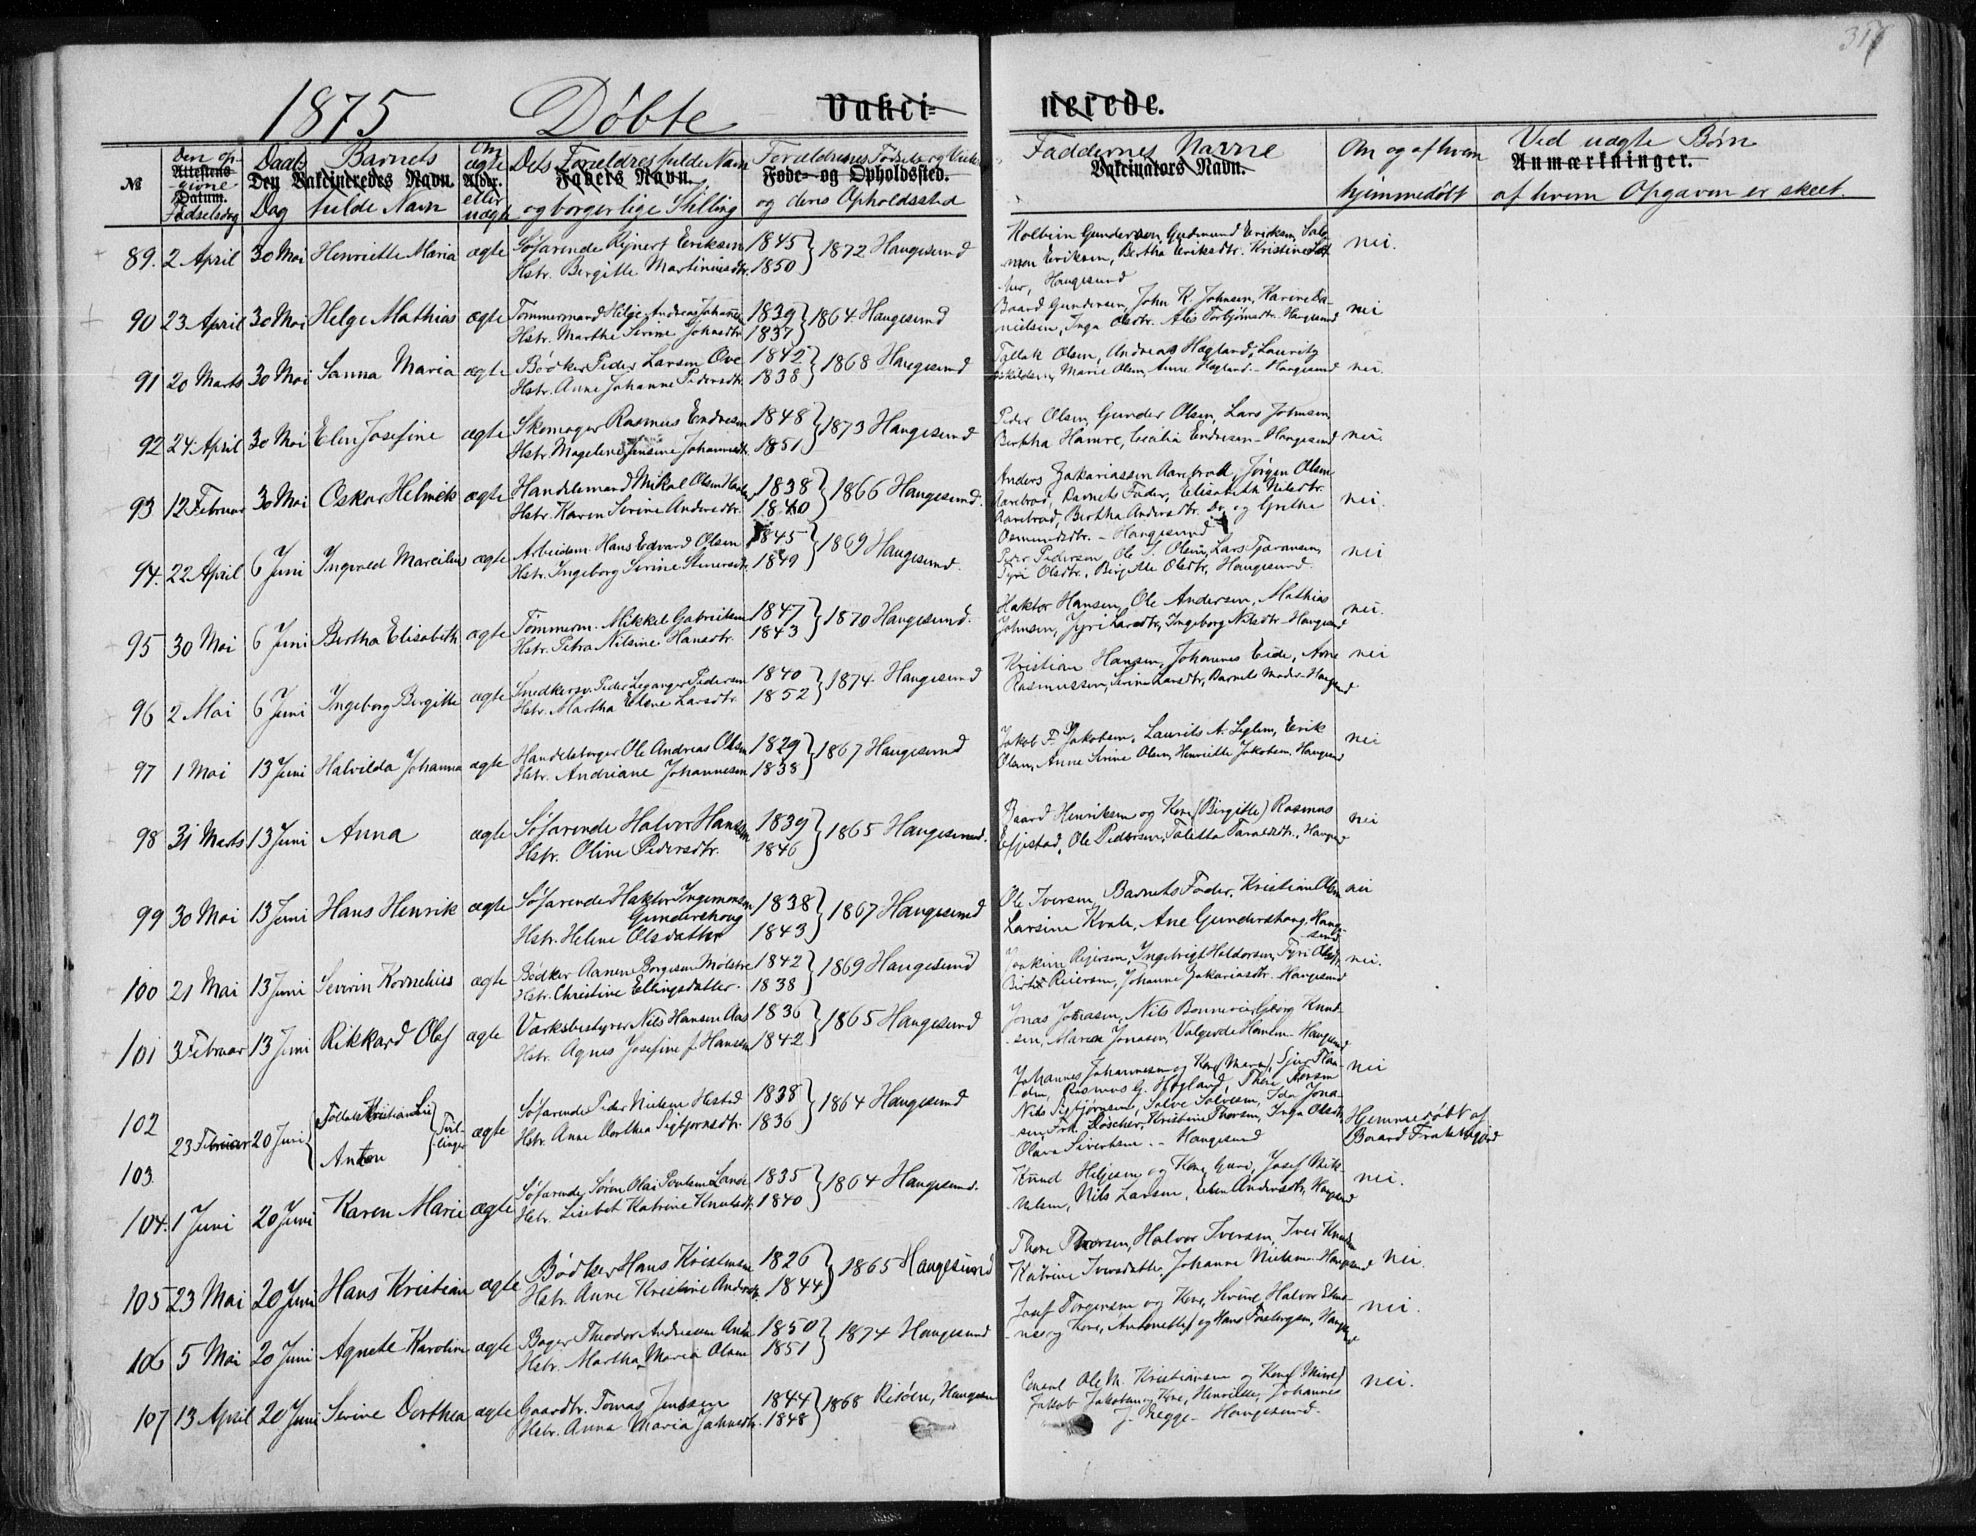 317
1875 Døbte Vakci-nerede.
№
Den op-
Attestens
givne
Datum.
Fødselsdag
Daabs
Den Vakcineredes Navn.
Dag
Barnets
fulde Navn
Om
ægte
Alder.
eller
uægte
Dets Forældres fulde Navn
Faders Navn.
og borgerlige Stilling
Forældrenes Fødselsår og
Føde- og Opholdssted.
og deres Opholdssted
Faddernes Navne
Vakcinators Navn.
Om og af hvem
hjemmedøbt
Ved uægte Børn
Anmærkninger.
af hvem Opgaven er skeet.
89. 2 April 30 Mai Henriette Maria ægte Søfarende Rejnert Eriksen 1845 } 1872 Haugesund
Hstr. Bergitte Martinusdtr. 1850
Kolbein Gundersen, Gudmund Eriksen, Salo-
mon Eriksen, Bertha Eriksdtr. Kristine
Haugesund
nei.
90 23 April 30 Mai Helge Mathias ægte Tømmermand Helge Andreas Johannesen 1839 } 1864 Haugesund
Hstr. Marthe Serine Johnsdtr. 1837
Baard Gundersen, John K. Johnsen, Karine Da-
nielsen, Inga Olsdtr. Alis Torbjørnsdtr. Haugesund
nei
91 20 Marts 30 Mai Sanna Maria ægte Bødker Peder Larsen Ove 1842 } 1868 Haugesund
Hstr. Anne Johanne Pedersdtr. 1838
Tollak Olsen, Andreas Høgland, Lauritz
Eskildsen, Marie Olsen, Anne Høgland - Haugesund
nei.
92 24 April 30 Mai Elen Josefine ægte Skomager Rasmus Endresen 1848 } 1873 Haugesund
Hstr. Magelene Jensine Johannesdtr. 1851
Peder Olsen, Gunder Olsen, Lars Johnsen
Bertha Hamre, Cecilia Endresen - Haugesund
nei.
93 12 Februar 30 Mai Oskar Helmik ægte Handelsmand Mikal Olsen 1838 } 1866 Haugesund.
Hstr. Karen Serine Andersdtr. 1840
Anders Zakariassen Aarebrod, Jørgen Olsen
Aarebrod, Barnets Fader, Elisabeth Nilsdtr.
Aarebrod, Bertha Andersdtr. Do. og Grethe
Osmundsdtr. - Haugesund
nei.
94. 22 April 6 Juni Ingvald Marcilius ægte Arbeidsm. Hans Edvard Olsen 1845 } 1869 Haugesund.
Hstr. Ingeborg Serine Steinersdtr. 1849
Peder Pedersen, Ole S. Olsen, Lars Tjøransen,
Tyri Olsdtr., Birgitte Olsdtr., Haugesund.
nei
95 30 Mai 6 Juni Bertha Elisabeth ægte Tømmerm. Mikkel Gabrielsen 1847 } 1870 Haugesund.
Hstr. Petra Nilsine Hansdtr. 1843
Haktor Hansen, Ole Andersen, Mathias
Johnsen, Jyri Larsdtr., Ingeborg Nilsdtr - Haugesund
nei.
96 2 Mai 6 Juni Ingeborg Birgitte ægte Snedkersv. Peder Leganger Pedersen 1840 } 1874 Haugesund
Hstr. Martha Elene Larsdtr. 1852
Kristian Hansen, Johannes Eide, Arne
Rasmussen, Serine Larsdtr., Barnets Moder - Haugesund
nei
97 1 Mai 13 Juni Halvilda Johanna ægte Handelsborger Ole Andreas Olsen 1829 } 1867 Haugesund
Hstr. Andriane Johannesen 1838
Jakob F. Jakobsen, Laurits A. Liglem, Erik
Olsen, Anne Serine Olsen, Henriette Jakobsen, Haugesund
nei
98 31 Marts 13 Juni Anna ægte Søfarende Halvor Hansen 1839 } 1865 Haugesund.
Hstr. Oline Pedersdtr. 1846
Baard Henriksen og Kone (Birgitte) Rasmus
Ole Pedersen, Taletta Taraldsdtr., Haugesund
nei
99 30 Mai 13 Juni Hans Henrik ægte Søfarende Haktor Ingemonsen 1838 } 1867 Haugesund
Gundershoug
Hstr. Helene Olsdatter 1843
Ole Iversen, Barnets Fader, Kristian Olsen
Larsine Kvale, Ane Gundershoug, Hauge-
sund
nei
100 21 Mai 13 Juni Severin Kornelius ægte Bødker Aanen Borgesen Mølstre 1842 } 1869 Haugesund
Hstr. Christine Ellingsdatter. 1838
Joakim Rejersen, Ingebrigt Haldorsen, Tyri Olsdtr.
Reiersen, Johanne Zakariasdtr. Haugesund
nei.
101 3 Februar 13 Juni Rikkard Olaf ægte Værksbestyrer Nils Hansen Aas 1836 } 1865 Haugesund
Hstr. Agnes Josefine f. Hansen 1842
Jonas Jonasen, Nils Bonnevie, Georg Knud-
sen, Maren Jonasen, Valgerde Hansen - Haugesund
102
23 Februar 20 Juni { Tollak Kristian Lie } Tvil-
Anton } linger
ægte Søfarende Peder Nielsen Hestad 1838 } 1864 Haugesund
Hstr. Anne Dorthea Sigbjørnsdtr. 1836
Johannes Johannesen og Kone (Maren), Sjur Flaa-
Rasmus G. Høgland, Thore Iversen
Nils Sigbjørnsen, Salve Salvesen, Ida Jona-
sen, Frk. Løscher, Kristine Thorsen, Inga Olsdtr.
Olava Sivertsen. - Haugesund
nei
Hjemmedøbt af
Baard
103.
104. 1 Juni 20 Juni Karen Marie ægte Søfarende Søren Olai Poulsen Lande 1835 } 1864 Haugesund.
Hstr. Lisebet Katrine Knutsdtr. 1840
Knud Helgesen og Kone Guri, Josef Mik-
kalsen, Nils Larsen, Elen Andersdtr., Haugesund
nei.
105 23 Mai 20 Juni Hans Kristian ægte Bødker Hans Kristensen 1826 } 1865 Haugesund
Hstr. Anne Kristine Andersdtr. 1844
Thore Thorsen, Halvor Iversen, Iver Knudsen
Katrine Iversdatter, Johanne Nielsen - Haugesund
nei.
106 5 Mai 20 Juni Agnete Karoline ægte Bager Theodor Andresen 1850 } 1874 Haugesund
Hstr. Martha Maria Olsen 1851
Josef Torgersen og Kone, Serine, Halvor
og Kone, Antonette) og Hans Torbergsen, Haugesund
nei.
107 13 April 20 Juni Serine Dorthea ægte Gaardbr. Tomas Jensen 1844 } 1868 Risøen, Haugesund
Hstr. Anna Maria Jahnsdtr. 1848
Ole M. Kristiansen og Kone (Mine)
Jakob Jakobsen, Kone, Henriette, Johannes
J. Egge - Haugesund.
nei.